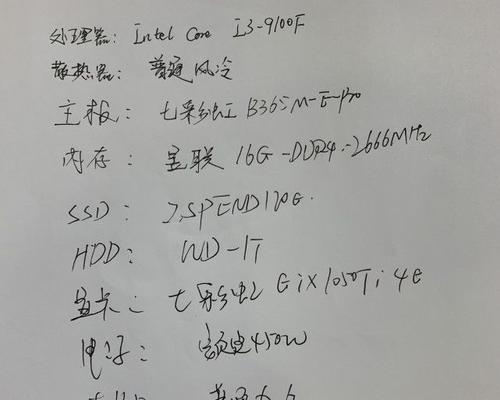 处理器: Intel Core i3-9100F
散热器: 普通风冷
主板: 七彩虹 B365M-E-Pro
内存: 昱联 16G-DDR4-2666MHz
SSD: 120G.
HDD: WD-1T
显卡: 七彩虹 GTX1050Ti 4G
电源: 额定450W